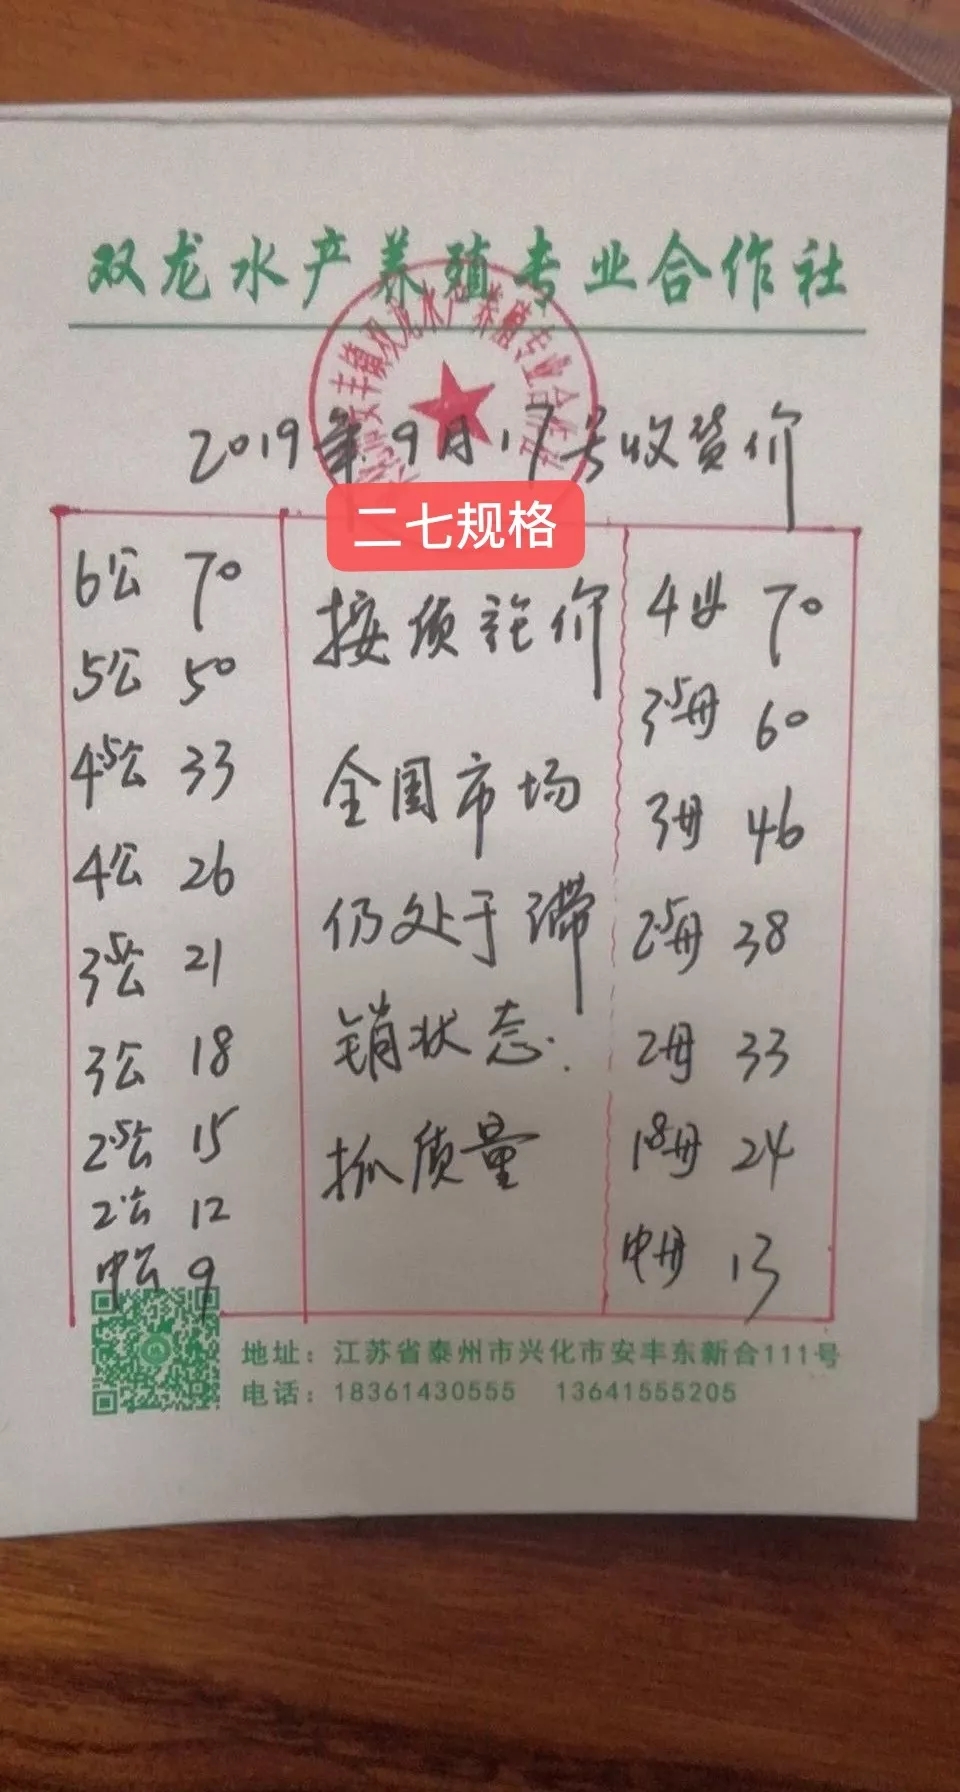 双龙水产养殖专业合作社
安丰镇双龙水产养殖专业合作社
2019年9月17号收货价
二七规格
6公 70
5公 50
4.5公 33
4公 26
3.5公 21
3公 18
2.5公 15
2公 12
中公 9
按质论价
全国市场
仍处于滞
销状态.
抓质量
4母 70
3.5母 60
3母 46
2.5母 38
2母 33
1.8母 24
中母 13
地址：江苏省泰州市兴化市安丰东新合111号
电话：18361430555 13641555205